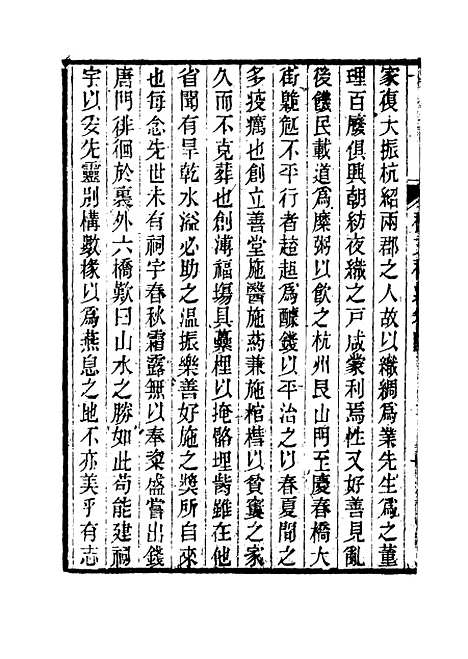 家復大振杭紹兩郡之人故以織綢爲業先生爲之董
理百廢俱興朝紡夜織之戸咸蒙利焉性又好善見亂
後饑民載道爲糜粥以飲之杭州艮山門至慶春橋大
街鼪瓸不平行者趑趄爲醵錢以平治之以春夏間之
多疫癘也創立善堂施醫施葯兼施棺槥以貧窶之家
久而不克葬也創溥福塲具虆梩以掩骼埋胔雖在他
省聞有旱乾水溢必助之温振樂善好施之獎所自來
也每念先世未有祠宇春秋霜露無以奉粢盛嘗出錢
唐門徘徊於裏外六橋歎曰山水之勝如此苟能建祠
宇以妥先靈別構數椽以爲燕息之地不亦美乎有志